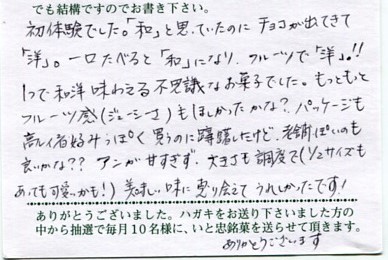 でも結構ですのでお書き下さい。
初体験でした。「和」と思っていたのにチョコが出てきて
「洋」。一口たべると「和」になり、フルーツで「洋」。!!
1つで和洋味わえる不思議なお菓子でした。もっともっと
フルーツ感(ジューシーさ)もほしかったかな？パッケージも
高レイ者好みっぽく買うのに躊躇したけど、老舗ぽいのも
良いかな？？アンが甘すぎず、大きさも調度で(1/2サイズも
あっても可愛いかも！)美味しい味に出会えてうれしかったです！
ありがとうございました。ハガキをお送り下さいました方の
中から抽選で毎月10名様に、いと忠銘菓を送らせて頂きます。
ありがとうございます